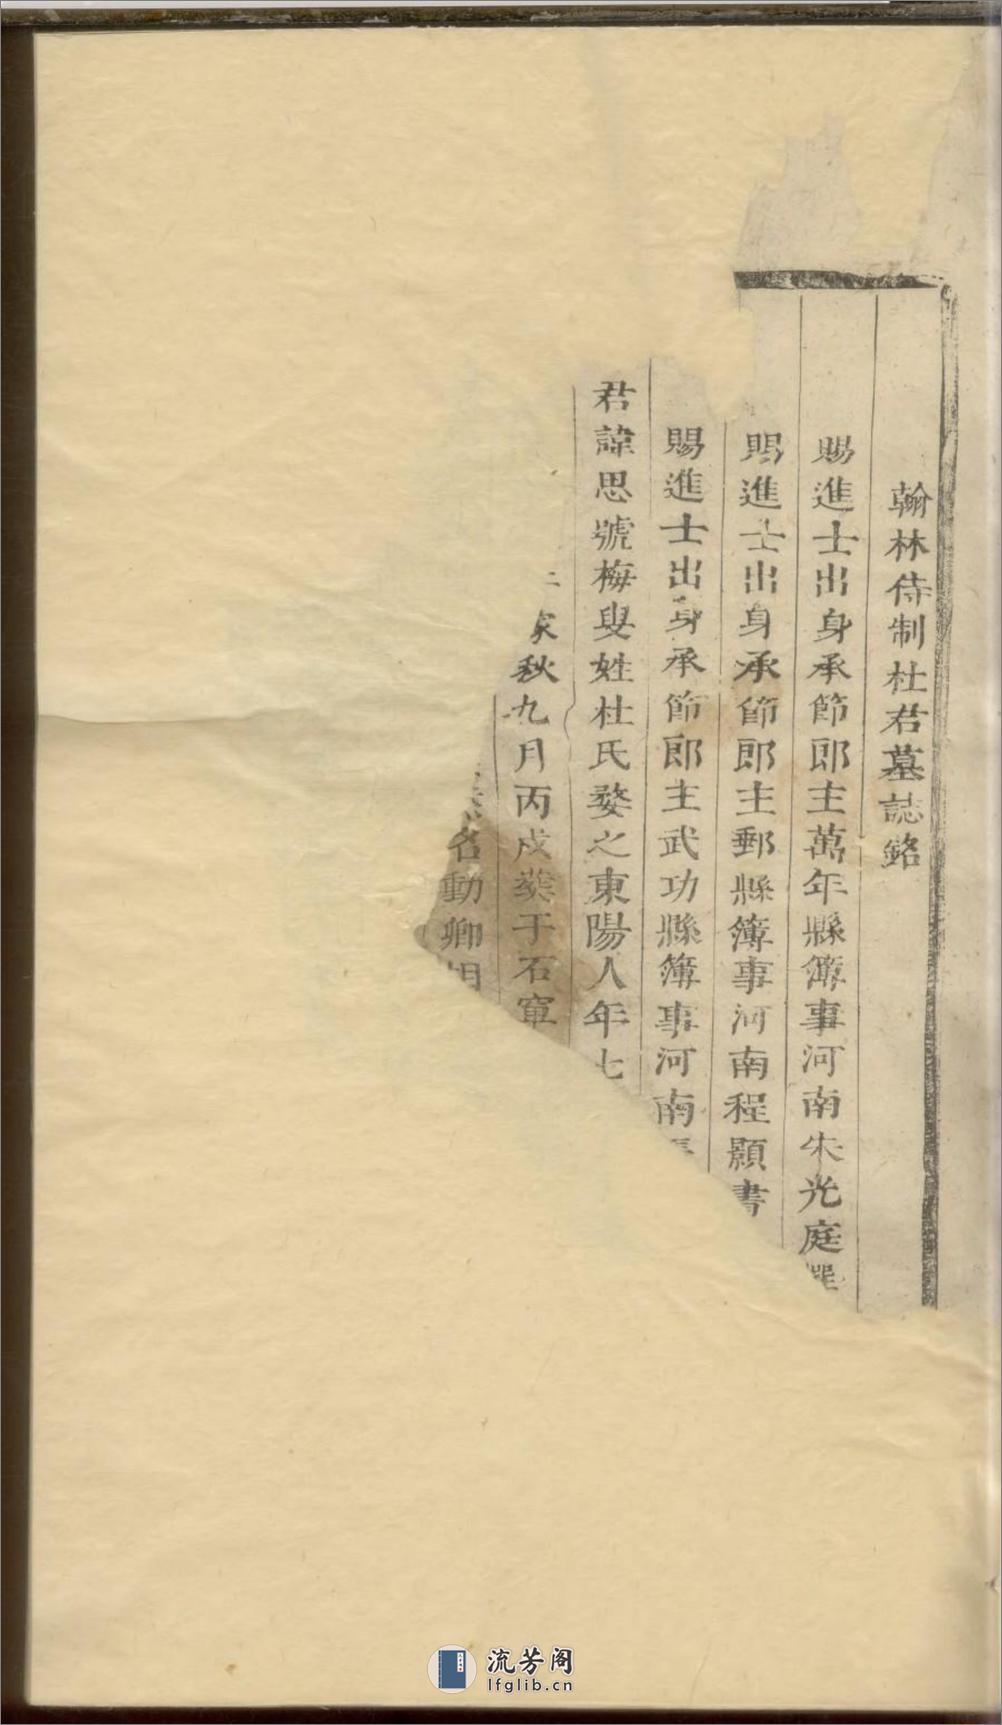 翰林侍制杜君墓誌銘
賜進士出身承節郎主萬年縣簿事河南朱光庭撰
賜進士出身承節郎主鄠縣簿事河南程顥書
賜進士出身承節郎主武功縣簿事河南
君諱思號梅叟姓杜氏婺之東陽人年七
秋九月丙戌葬于石窜
名動卿
流芳阁
lfglib.cn